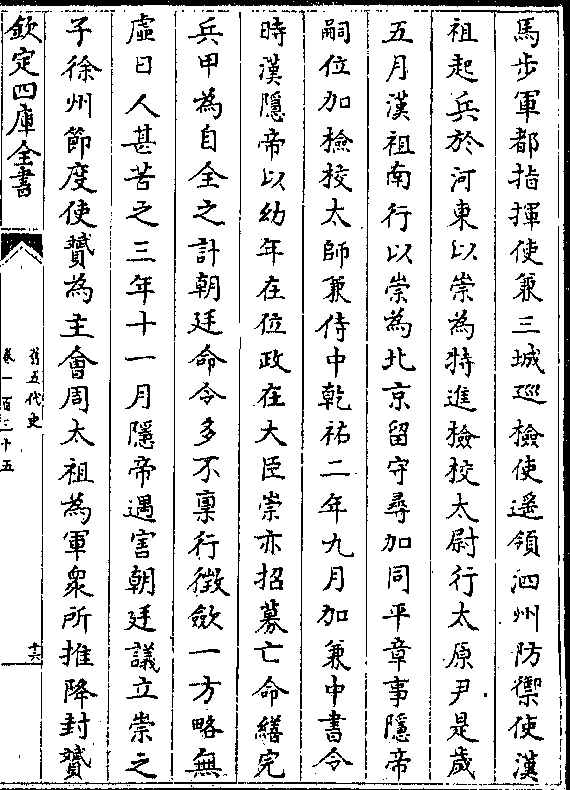 馬步軍都指揮使兼三城巡檢使遥領泗州防禦使漢
祖起兵於河東以崇為特進檢校太尉行太原尹是歲
五月漢祖南行以崇為北京留守尋加同平章事隱帝
嗣位加檢校太師兼侍中乾祐二年九月加兼中書令
時漢隱帝以幼年在位政在大臣崇亦招募亡命繕完
兵甲為自全之計朝廷命令多不稟行徵歛一方略無
虛日人甚苦之三年十一月隱帝遇害朝廷議立崇之
子徐州節度使贇為主會周太祖為軍衆所推降封贇
欽定四庫全書
舊五代史
卷一百三十五
十六